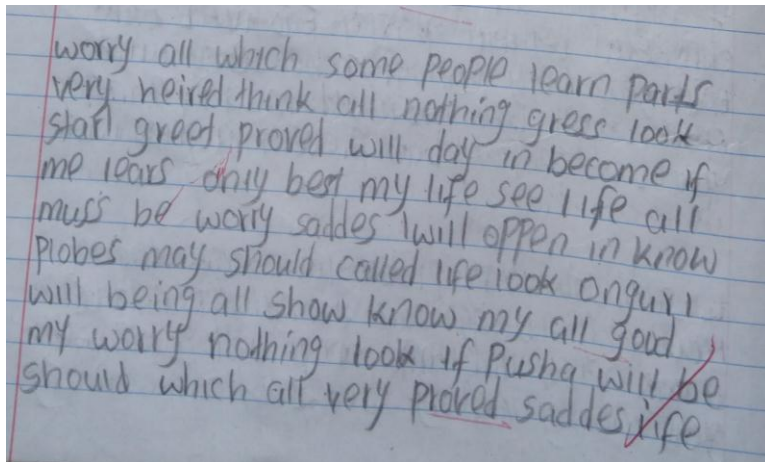 worry all which some people learn parts
very heired think all nothing gress look
starl greet proved will day in become if
me lears only best my life see life all
muss be worry saddes I will oppen in know
plobes may should called life look onguri
will being all show know my all good
my worry nothing look if Pusha will be
should which all very proved saddes life